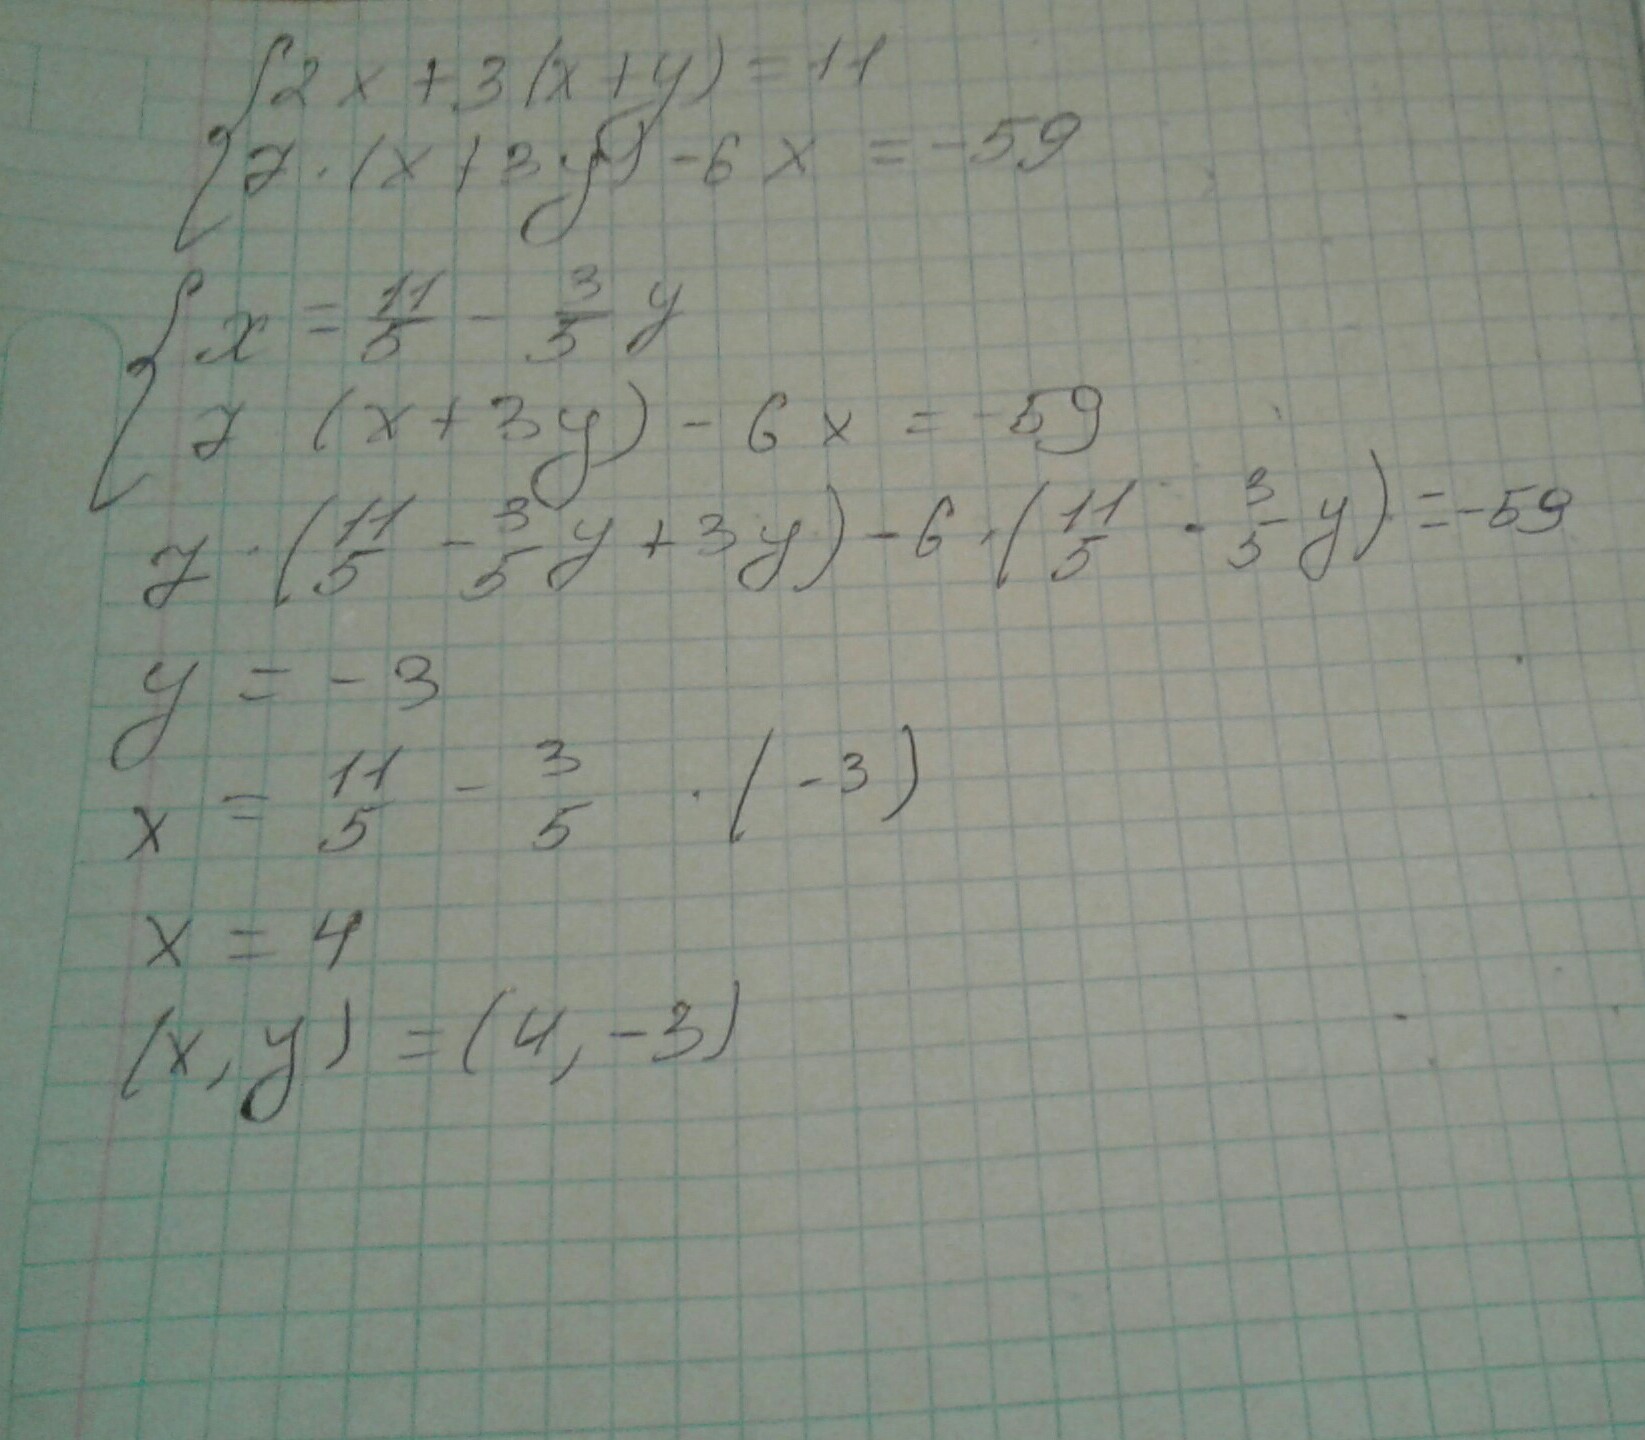 {2x + 3(x+y) = 11
7·(x+3y) - 6x = -59
{x = 11/5 - 3/5 y
7 (x+3y) - 6x = -59
7·(11/5 - 3/5 y + 3y) - 6·(11/5 - 3/5 y) = -59
y = -3
x = 11/5 - 3/5 · (-3)
x = 4
(x, y) = (4, -3)